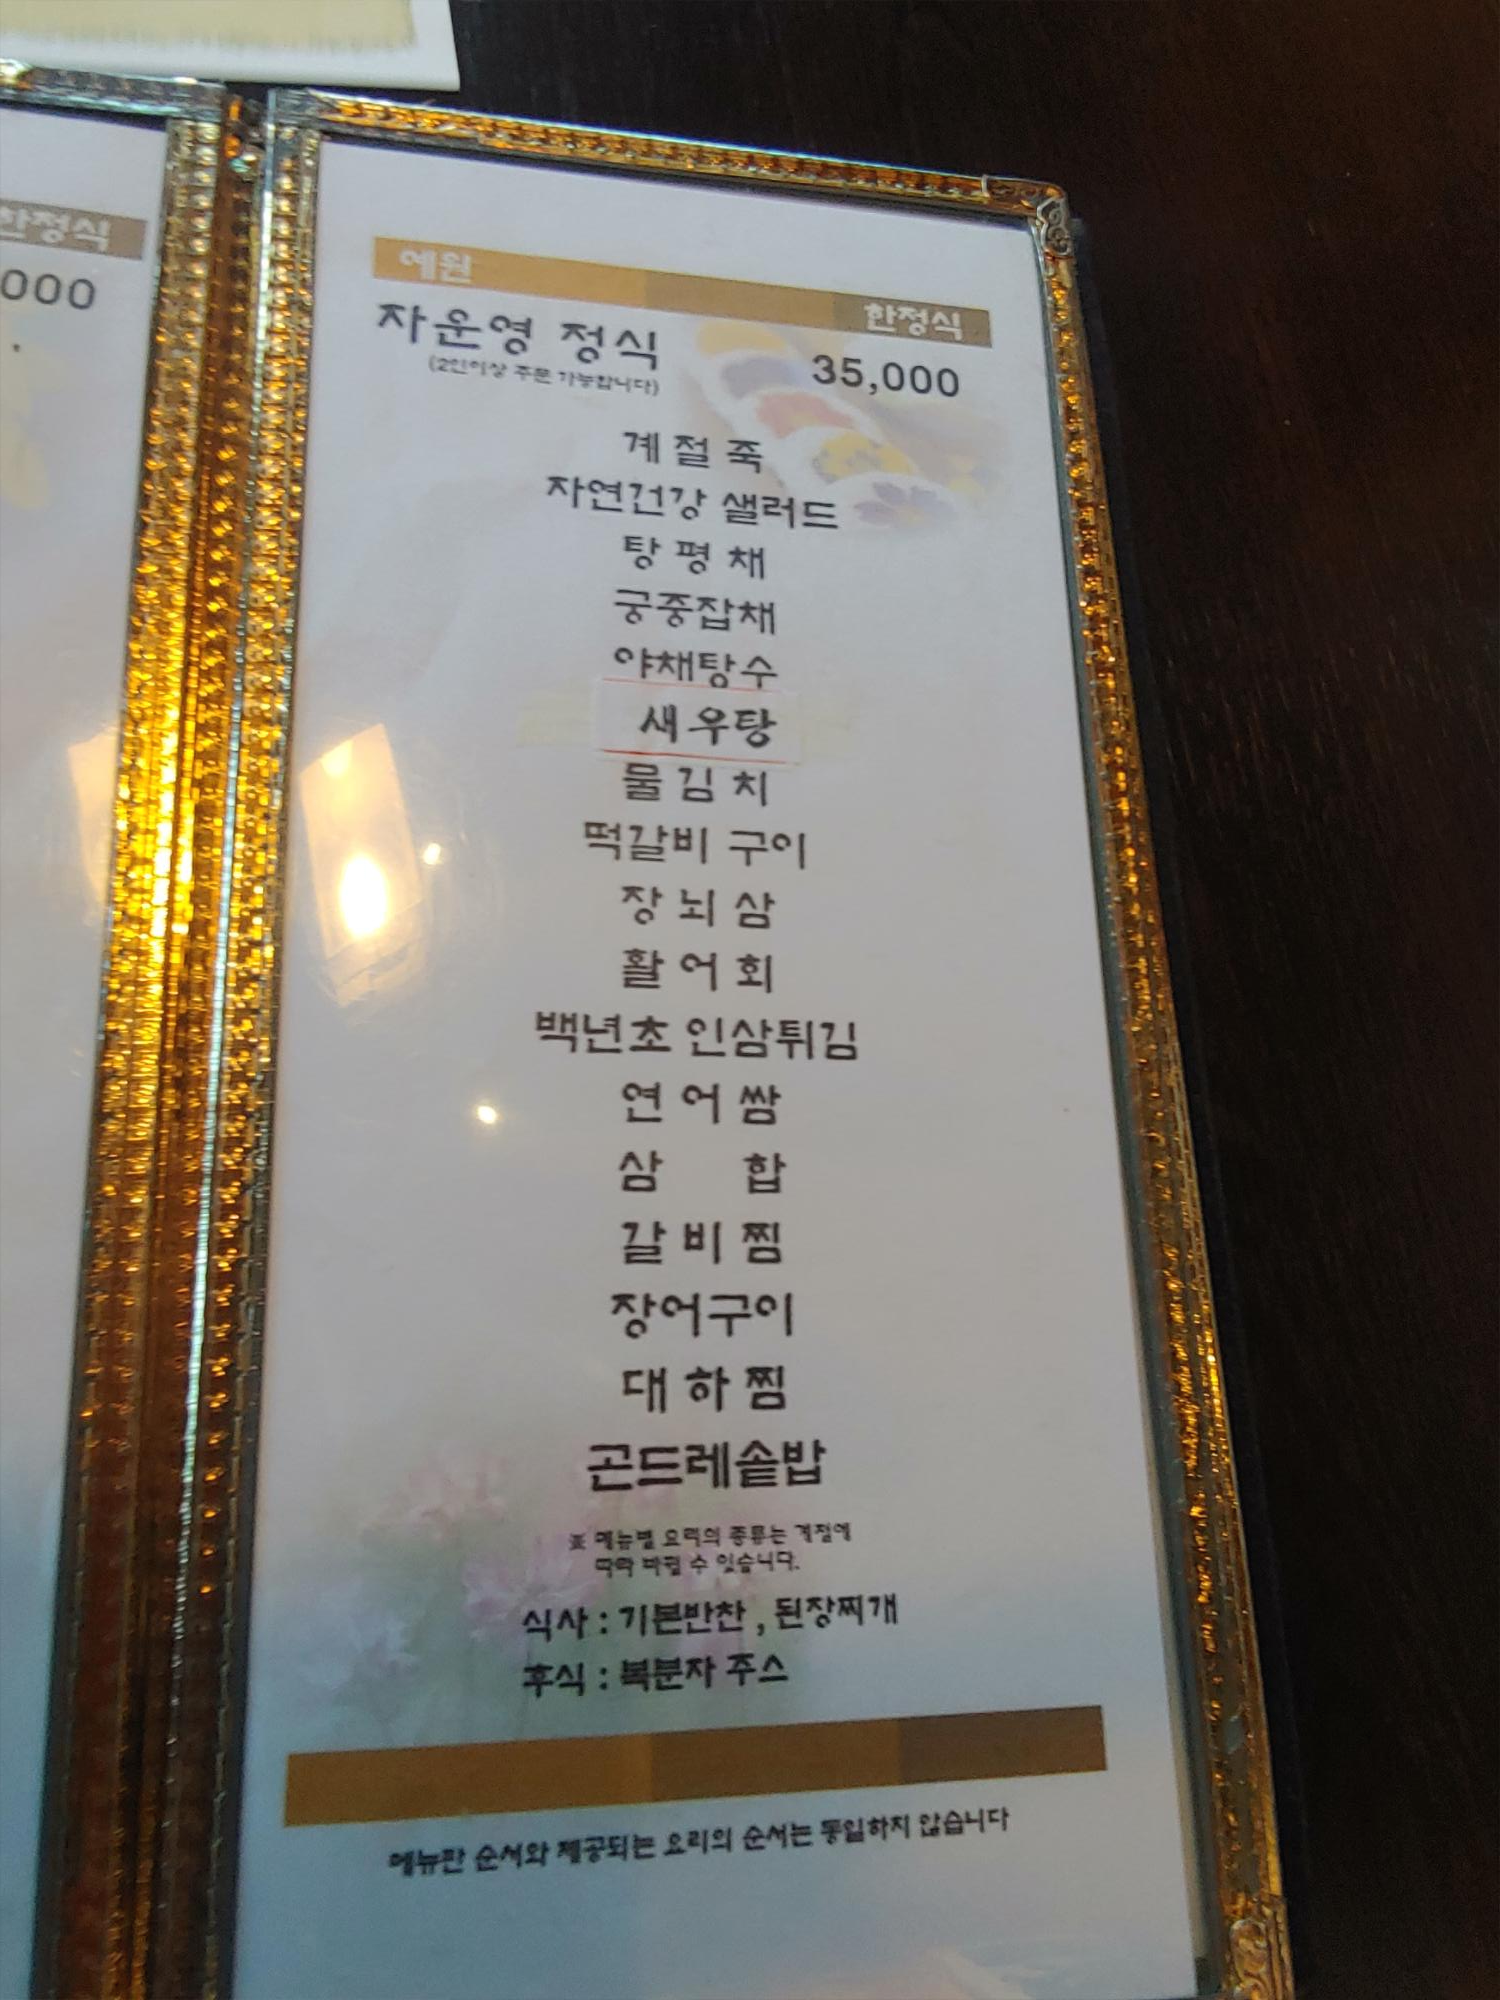 한정식
000
예원
한정식
자운영 정식
35,000
(2인이상 주문 가능합니다)
계절죽
자연건강 샐러드
탕평채
궁중잡채
야채탕수
새우탕
물김치
떡갈비 구이
장뇌삼
활어회
백년초 인삼튀김
연어쌈
삼 합
갈비찜
장어구이
대하찜
곤드레솥밥
※ 메뉴별 요리의 종류는 계절에
따라 바뀔 수 있습니다.
식사 : 기본반찬 , 된장찌개
후식 : 복분자 주스
메뉴판 순서와 제공되는 요리의 순서는 동일하지 않습니다